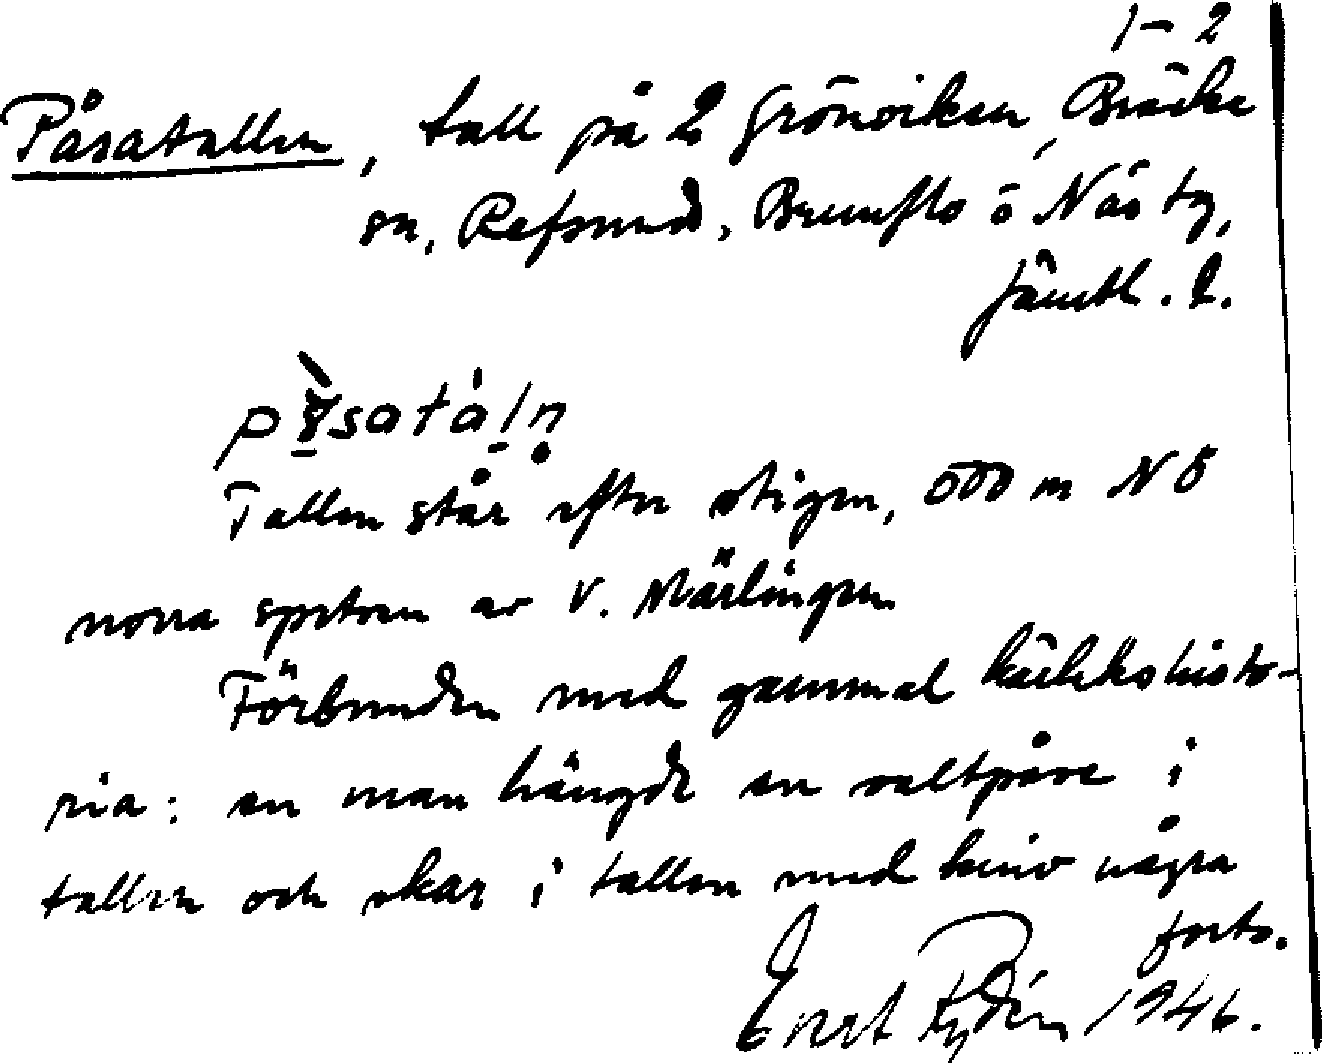 1-2
Påsatallen, tall på 2 Grönviken, Bräcke
sn, Refsund, Brunflo o Näs tg,
Jämtl. l.
Tallen står efter stigen, 500 m NÖ
norra spetsen av V. Märlingen
Förbunden med gammal kärlekshisto-
ria: en man hängde en saltpåse i
tallen och skar i tallen med kniv några
forts.
Evert Rydén 1946.